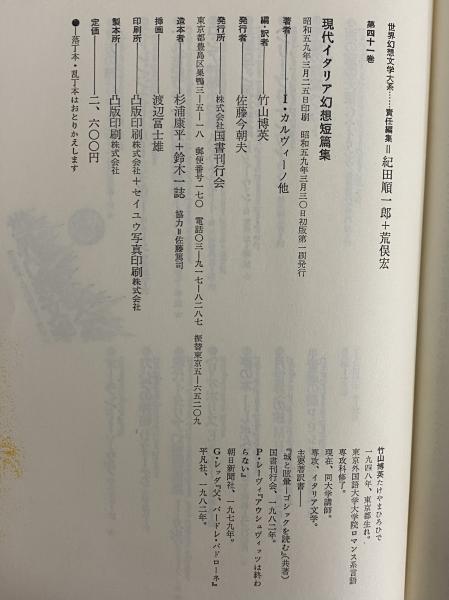 世界幻想文学大系……責任編集＝紀田順一郎＋荒俣宏
第四十一巻
現代イタリア幻想短篇集
昭和五九年三月二五日印刷　昭和五九年三月三〇日初版第一刷発行
著者――I・カルヴィーノ他
編・訳者――竹山博英
発行者――佐藤今朝夫
発行所――株式会社国書刊行会
東京都豊島区巣鴨三―五―一八　郵便番号一七〇　電話〇三―九一七―八二八七　振替東京五―六五二〇九
造本者――杉浦康平＋鈴木一誌　協力＝佐藤篤司
挿画――渡辺冨士雄
印刷所――凸版印刷株式会社＋セイユウ写真印刷株式会社
製本所――凸版印刷株式会社
定価――二、六〇〇円
●――落丁本・乱丁本はおとりかえします
竹山博英たけやまひろひで
一九四八年、東京都生れ。
東京外国語大学大学院ロマンス系言語
専攻科修了。
現在、同大学講師。
専攻、イタリア文学。
主要著訳書――
『城と眩暈―ゴシックを読む』（共著）
国書刊行会、一九八二年。
P・レーヴィ『アウシュヴィッツは終わ
らない』
朝日新聞社、一九七九年。
G・レッダ『父、パードレ・パドローネ』
平凡社、一九八二年。